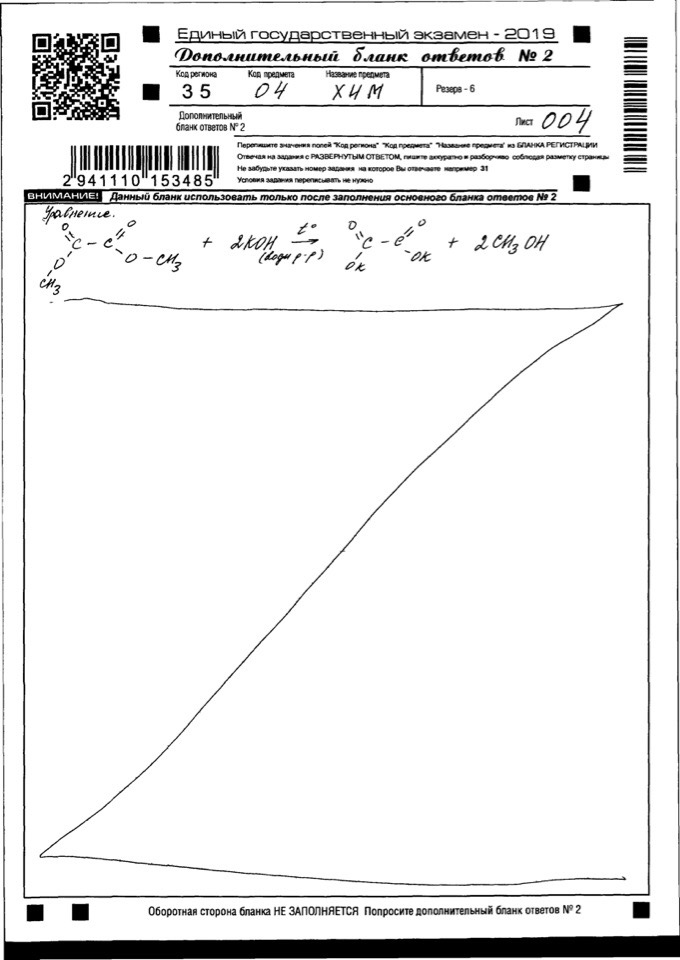 Единый государственный экзамен - 2019
Дополнительный бланк ответов № 2
Код региона Код предмета Название предмета
35 04 ХИМ Резерв - 6
Дополнительный
бланк ответов № 2
Лист 004
Перепишите значения полей "Код региона" "Код предмета" "Название предмета" из БЛАНКА РЕГИСТРАЦИИ
Отвечая на задания с РАЗВЕРНУТЫМ ОТВЕТОМ, пишите аккуратно и разборчиво соблюдая разметку страницы
Не забудьте указать номер задания на которое Вы отвечаете например 31
Условия задания переписывать не нужно
2 941110 153485
ВНИМАНИЕ! Данный бланк использовать только после заполнения основного бланка ответов № 2
Уравнение.
O O t° O O
C - C + 2KOH → C - C + 2CH3OH
O O - CH3 (водн р-р) OK OK
CH3
Оборотная сторона бланка НЕ ЗАПОЛНЯЕТСЯ Попросите дополнительный бланк ответов № 2